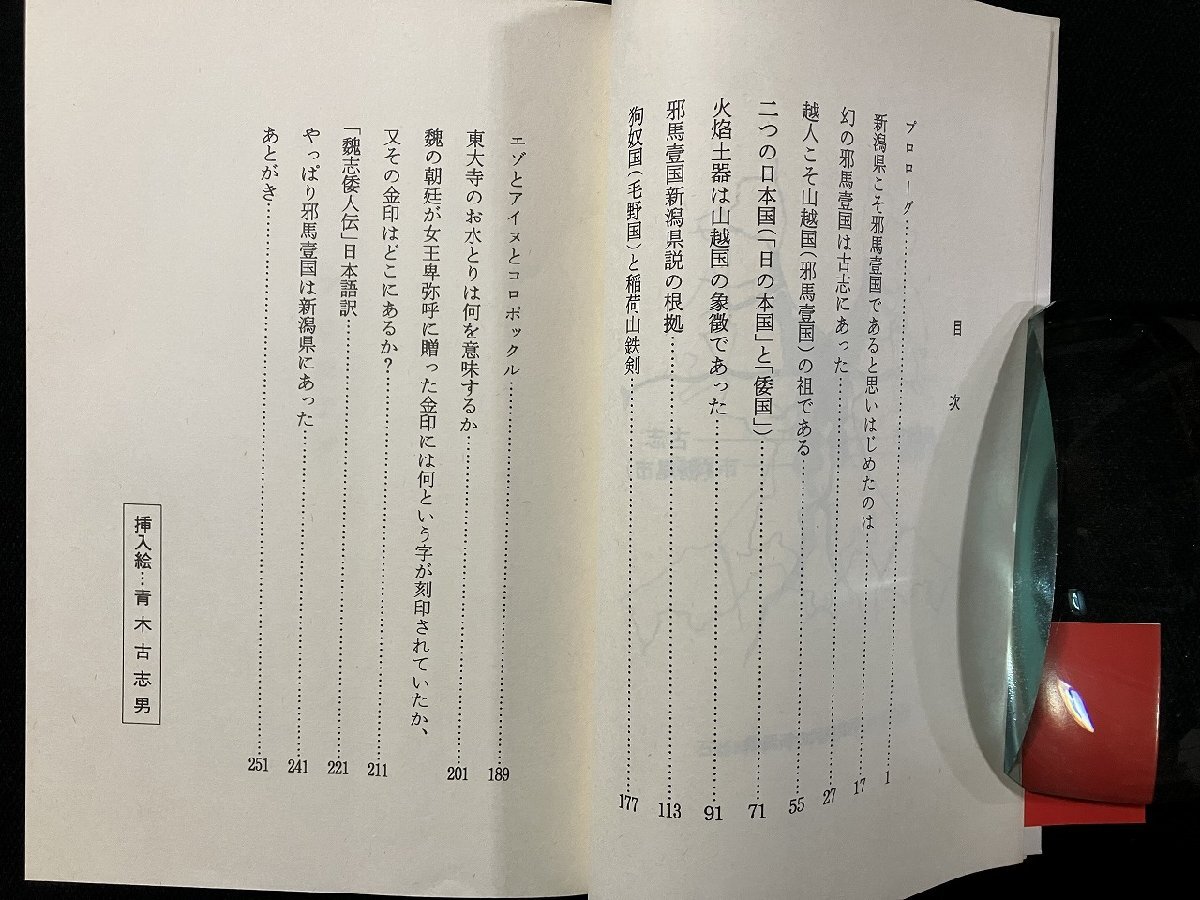 目次
プロローグ……………………1
新潟県こそ邪馬壹国であると思いはじめたのは……………………17
幻の邪馬壹国は古志にあった……………………27
越人こそ山越国(邪馬壹国)の祖である……………………55
二つの日本国(「日の本国」と「倭国」)……………………71
火焰土器は山越国の象徴であった……………………91
邪馬壹国新潟県説の根拠……………………113
狗奴国(毛野国)と稲荷山鉄剣……………………177
エゾとアイヌとコロボックル……………………189
東大寺のお水とりは何を意味するか……………………201
魏の朝廷が女王卑弥呼に贈った金印には何という字が刻印されていたか、
又その金印はどこにあるか?……………………211
「魏志倭人伝」日本語訳……………………221
やっぱり邪馬壹国は新潟県にあった……………………241
あとがき……………………251
挿入絵…青木古志男